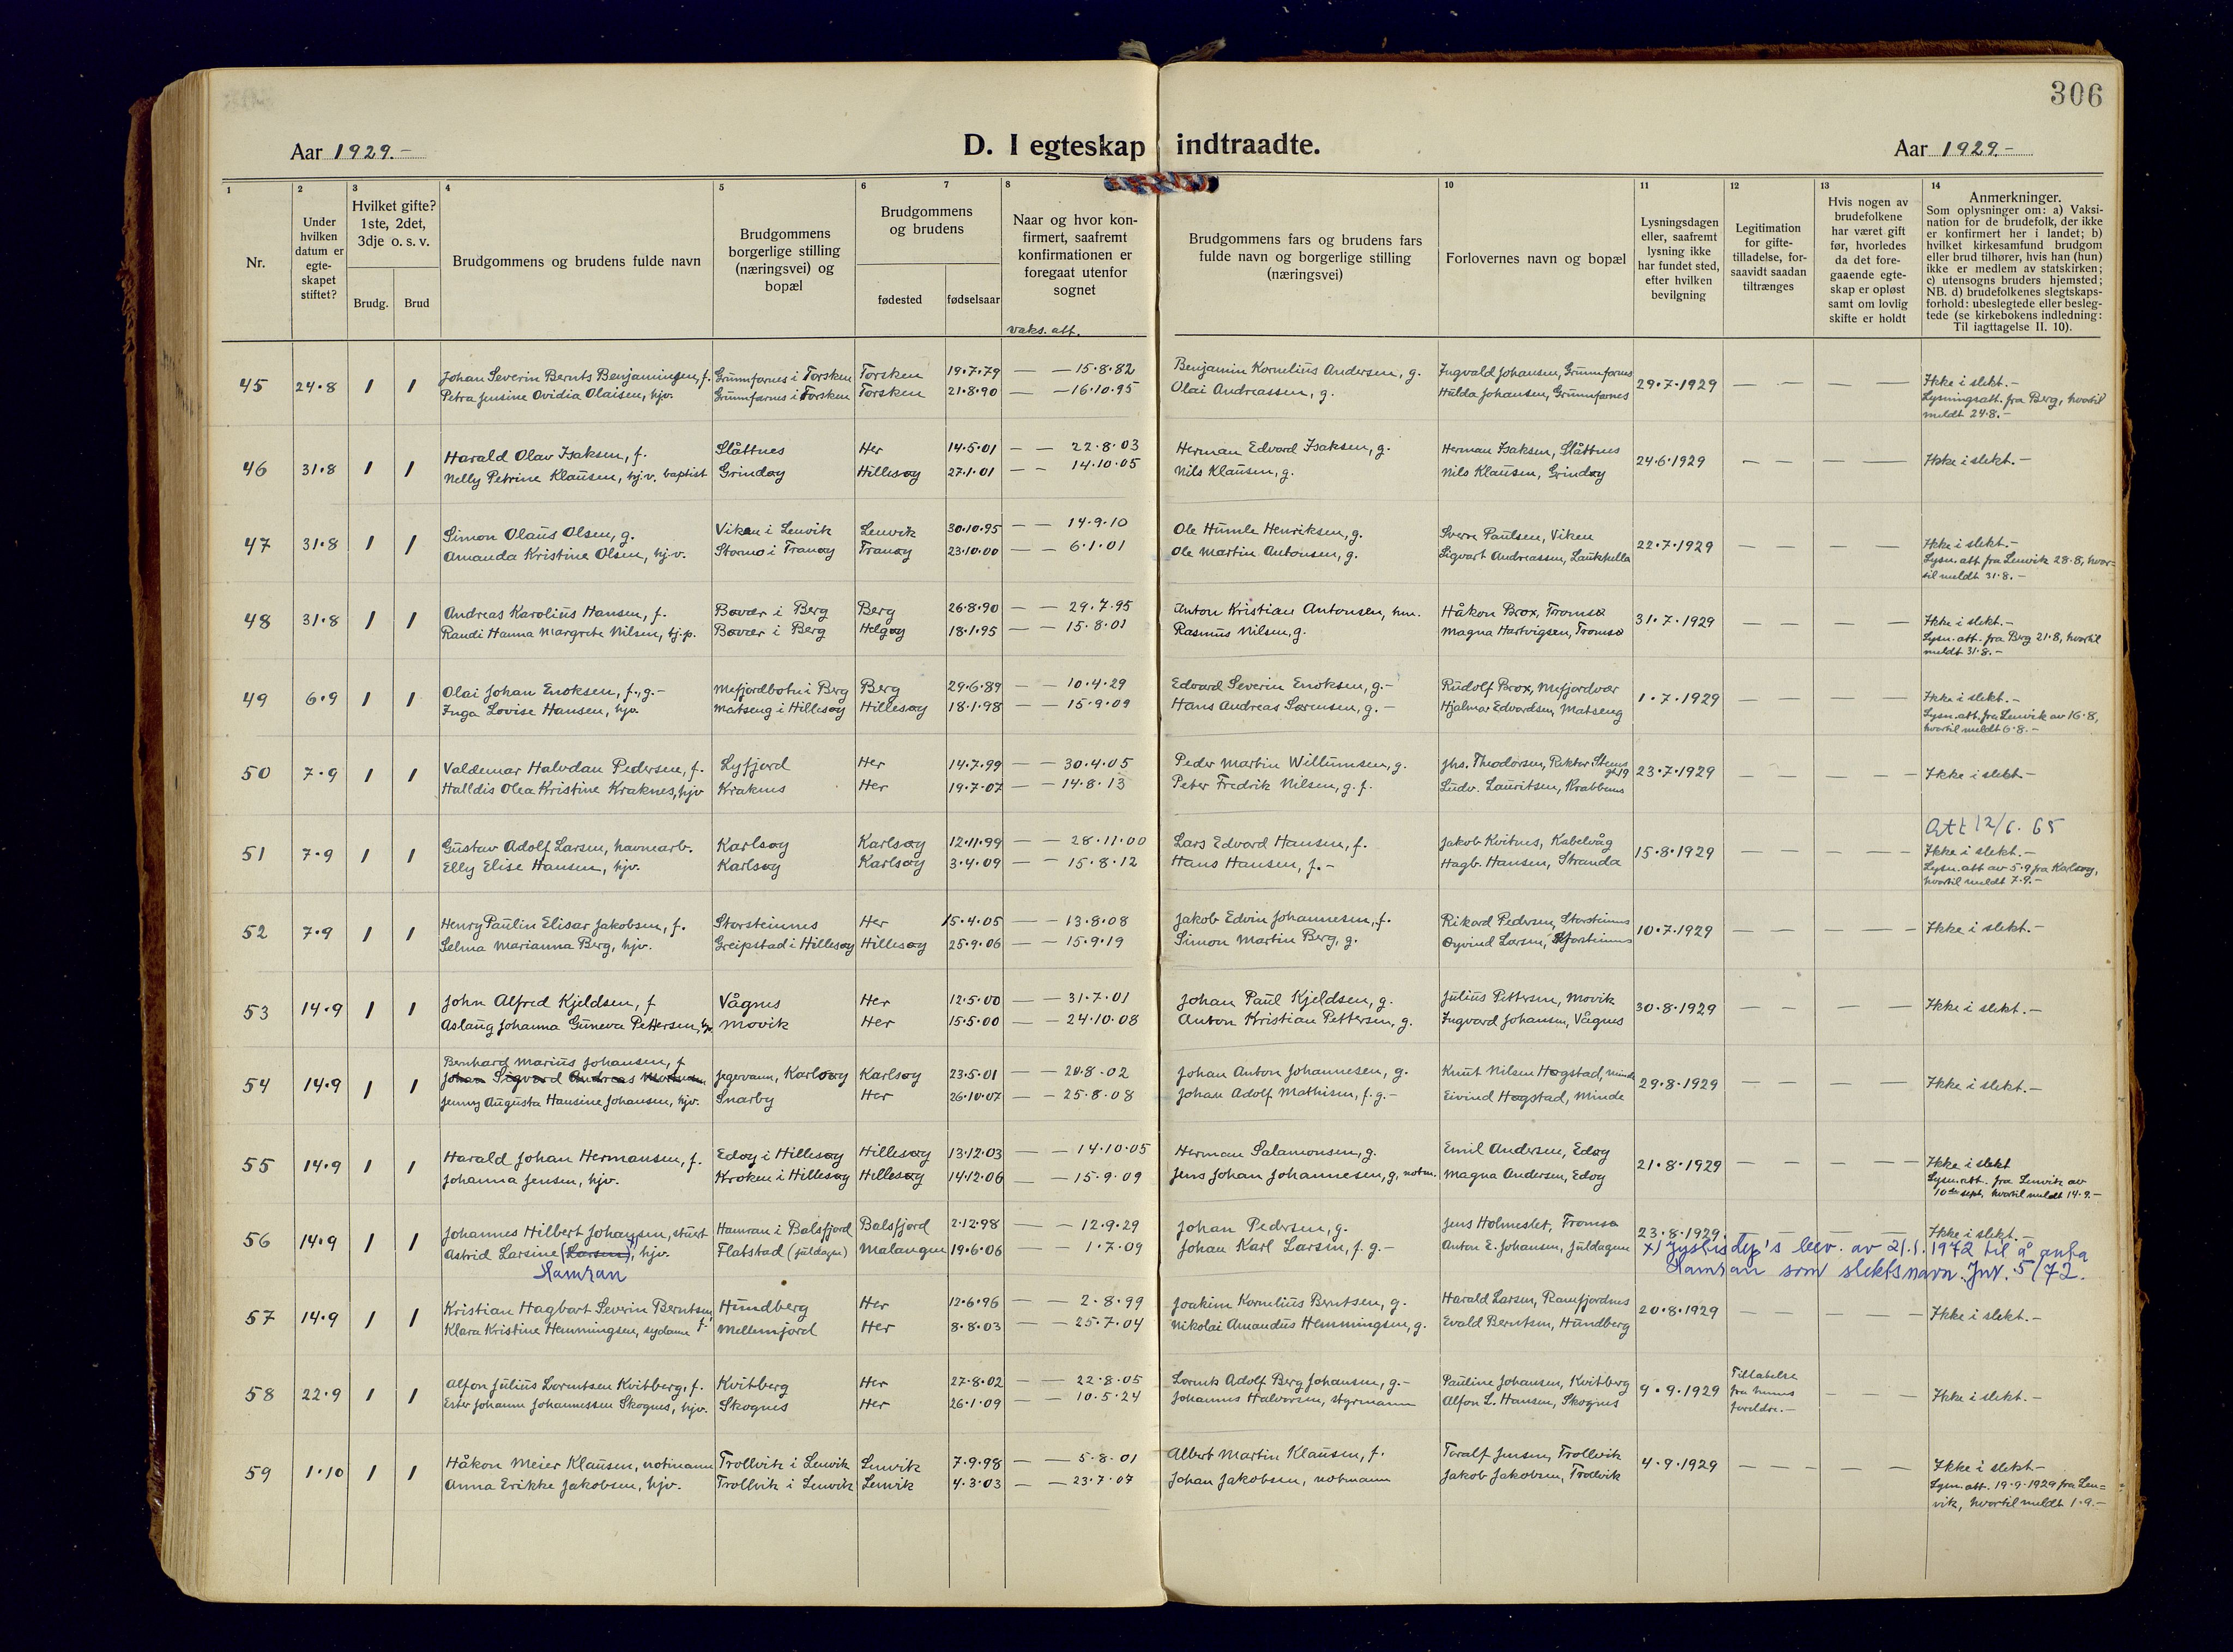 306
Aar 1929.-
D. I egteskap indtraadte.
Aar 1929.-
1
2
3
4
5
6
7
8
10
11
12
13
14
Nr.
Under hvilken datum er egte-skapet stiftet?
Hvilket gifte? 1ste, 2det, 3dje o. s. v.
Brudg.
Brud
Brudgommens og brudens fulde navn
Brudgommens borgerlige stilling (næringsvei) og bopæl
Brudgommens og brudens
fødested
fødselsaar
Naar og hvor kon-firmert, saafremt konfirmationen er foregaat utenfor sognet
vaks. att.
Brudgommens fars og brudens fars fulde navn og borgerlige stilling (næringsvei)
Forlovernes navn og bopæl
Lysningsdagen eller, saafremt lysning ikke har fundet sted, efter hvilken bevilgning
Legitimation for gifte-tilladelse, for-saavidt saadan tiltrænges
Hvis nogen av brudefolkene har været gift før, hvorledes da det fore-gaaende egte-skap er opløst samt om lovlig skifte er holdt
Anmerkninger.
Som oplysninger om: a) Vaksi-nation for de brudefolk, der ikke er konfirmert her i landet; b) hvilket kirkesamfund brudgom eller brud tilhører, hvis han (hun) ikke er medlem av statskirken; c) utensogns bruders hjemsted; NB. d) brudefolkenes slegtskaps-forhold: ubeslegtede eller besleg-tede (se kirkebokens indledning: Til iagttagelse II. 10).
45 24.8 1 1 Johan Severin Bernts Benjaminsen, f. Grunnfarnes i Torsken Torsken 19.7.79 — — 15.8.82 Benjamin Kornelius Andersen, g. Ingvald Johansen, Grunnfarnes 29.7.1929 — — — — Ikke i slekt.-
Petra Jensine Ovidia Olaisen, hjv. Grunnfarnes i Torsken Torsken 21.8.90 — — 16.10.95 Olai Andreassen, g. Hulda Johansen, Grunnfarnes Lysningsatt. fra Berg, hvortil
meldt 24.8.-
46 31.8 1 1 Harald Olav Isaksen, f. Slåttnes Her 14.5.01 — — 22.8.03 Herman Edvard Isaksen, g. Herman Isaksen, Slåttnes 24.6.1929 — — — — Ikke i slekt.-
Nelly Petrine Klausen, hj.v. baptist Grindøy Hillesøy 27.1.01 — — 14.10.05 Nils Klausen, g. Nils Klausen, Grindøy
47 31.8 1 1 Simon Olaus Olsen, g. Viken i Lenvik Lenvik 30.10.95 — — 14.9.10 Ole Humle Henriksen, g. Sverre Paulsen, Viken 22.7.1929 — — — — Ikke i slekt.-
Amanda Kristine Olsen, hj.v. Stormo i Tranøy Tranøy 23.10.00 — — 6.1.01 Ole Martin Antonsen, g. Sigvart Andreassen, Laukhella Lysn. att fra Lenvik 28.8, hvor=
til meldt 31.8.-
48 31.8 1 1 Andreas Karolius Hansen, f. Bøvær i Berg Berg 26.8.90 — — 29.7.95 Anton Kristian Antonsen, hm. Håkon Brox, Tromsø 31.7.1929 — — — — Ikke i slekt.-
Randi Hanna Margrete Nilsen, tj.p. Bøvær i Berg Helgøy 18.1.95 — — 15.8.01 Rasmus Nilsen, g. Magna Hartvigsen, Tromsø Lysn. att. fra Berg 21.8, hvortil
meldt 31.8.-
49 6.9 1 1 Olai Johan Enoksen, f., g.- Mefjordbotn i Berg Berg 29.6.89 — — 10.4.29 Edvard Severin Enoksen, g.- Rudolf Brox, Mefjordvær 1.7.1929 — — — — Ikke i slekt.-
Inga Lovise Hansen, hjv. Matseng i Hillesøy Hillesøy 18.1.98 — — 15.9.09 Hans Andreas Sørensen, g.- Hjalmar Edvardsen, Matseng Lysn. att. fra Lenvik av 16.8,
hvortil meldt 6.8.-
50 7.9 1 1 Valdemar Halvdan Pedersen, f. Lyfjord Her 14.7.99 — — 30.4.05 Peder Martin Willumsen, g. Jhs. Theodorsen, Rektor Steens gt 19 23.7.1929 — — — — Ikke i slekt.-
Halldis Olea Kristine Kraknes, hjv Kraknes Her 19.7.07 — — 14.8.13 Peter Fredrik Nilsen, g. f. Ludv. Lauritsen, Krabbenes
Att 12/6. 65
51 7.9 1 1 Gustav Adolf Larsen, havnearb. Karlsøy Karlsøy 12.11.99 — — 28.11.00 Lars Edvard Hansen, f. Jakob Kvitnes, Kabelvåg 15.8.1929 — — — — Ikke i slekt.-
Elly Elise Hansen, hjv. Karlsøy Karlsøy 3.4.09 — — 15.8.12 Hans Hansen, f.- Hagb. Hansen, Stranda Lysn. att av 5.9 fra Karlsøy,
hvortil meldt 7.9.-
52 7.9 1 1 Henry Paulin Elisar Jakobsen, f. Storsteinnes Her 15.4.05 — — 13.8.08 Jakob Edvin Johannesen, f. Rikard Pedersen, Storsteinnes 10.7.1929 — — — — Ikke i slekt.-
Selma Marianna Berg, hjv. Greipstad i Hillesøy Hillesøy 25.9.06 — — 15.9.19 Simon Martin Berg, g. Øyvind Larsen, Storsteinnes
53 14.9 1 1 John Alfred Kjeldsen, f Vågnes Her 12.5.00 — — 31.7.01 Johan Paul Kjeldsen, g. Julius Pettersen, Movik 30.8.1929 — — — — Ikke i slekt.-
Aslaug Johanna Guneva Pettersen, hjv Movik Her 15.5.00 — — 24.10.08 Anton Kristian Pettersen, g. Ingvard Johansen, Vågnes
Bernhard Marius Johansen, f
54 14.9 1 1 Johan Sigvard Andreas Jegervann, Karlsøy Karlsøy 23.5.01 — — 20.8.02 Johan Anton Johannesen, g. Knut Nilsen Høgstad, Minde 29.8.1929 — — — — Ikke i slekt.-
Jenny Augusta Hansine Johansen, hjv. Snarby Her 26.10.07 — — 25.8.08 Johan Adolf Mathisen, f. g.- Eivind Høgstad, Minde
55 14.9 1 1 Harald Johan Hermansen, f. Edøy i Hillesøy Hillesøy 13.12.03 — — 14.10.05 Herman Salamonsen, g. Emil Andersen, Edøy 21.8.1929 — — — — Ikke i slekt
Johanna Jensen, hjv. Kroken i Hillesøy Hillesøy 14.12.06 — — 15.9.09 Jens Johan Johannesen, g, notm. Magna Andersen, Edøy Lysn. att. fra Lenvik av
10de sept, hvortil meldt 14.9.-
56 14.9 1 1 Johannes Hilbert Johansen, stuert Hamran i Balsfjord Balsfjord 2.12.98 — — 12.9.29 Johan Pedersen, g. Jens Holmeslet, Tromsø 23.8.1929 Ikke i slekt.-
Astrid Larsine (Larsen)x), hjv. Flatstad (Juldagen) Malangen 19.6.06 — — 1.7.09 Johan Karl Larsen, f. g.- Anton E. Johansen, Juldagen x) Justisdep's bev. av 21.1.1972 til å anta
Hamran Hamran som slektsnavn. Jnr. 5/72.
57 14.9 1 1 Kristian Hagbart Severin Berntsen, f. Hundberg Her 12.6.96 — — 2.8.99 Joakim Kornelius Berntsen, g. Harald Larsen, Ramfjordnes 20.8.1929 — — — — Ikke i slekt.-
Klara Kristine Hemmingsen, sydame Mellemjord Her 8.8.03 — — 25.7.04 Nikolai Amandus Hemmingsen, g. Evald Berntsen, Hundberg
58 22.9 1 1 Alfon Julius Lorentsen Kvitberg, f. Kvitberg Her 27.8.02 — — 22.8.05 Lorents Adolf Berg Johansen, g.- Pauline Johansen, Kvitberg 9.9.1929 Tillatelse fra hennes foreldre.- — — — Ikke i slekt.-
Ester Johanne Johannessen Skognes, hjv. Skognes Her 26.1.09 — — 10.5.24 Johannes Halvorsen, styrmann Alfon L. Hansen, Skognes
59 1.10 1 1 Håkon Meier Klausen, notmann Trollvik i Lenvik Lenvik 7.9.98 — — 5.8.01 Albert Martin Klausen, f. Toralf Jensen, Trollvik 4.9.1929 — — — — Ikke i slekt.-
Anna Erikke Jakobsen, hjv. Trollvik i Lenvik Lenvik 4.3.03 — — 23.7.07 Johan Jakobsen, notmann Jakob Jakobsen, Trollvik Lysn. att. 19.9.1929 fra Len=
vik, hvortil meldt 1.9.-